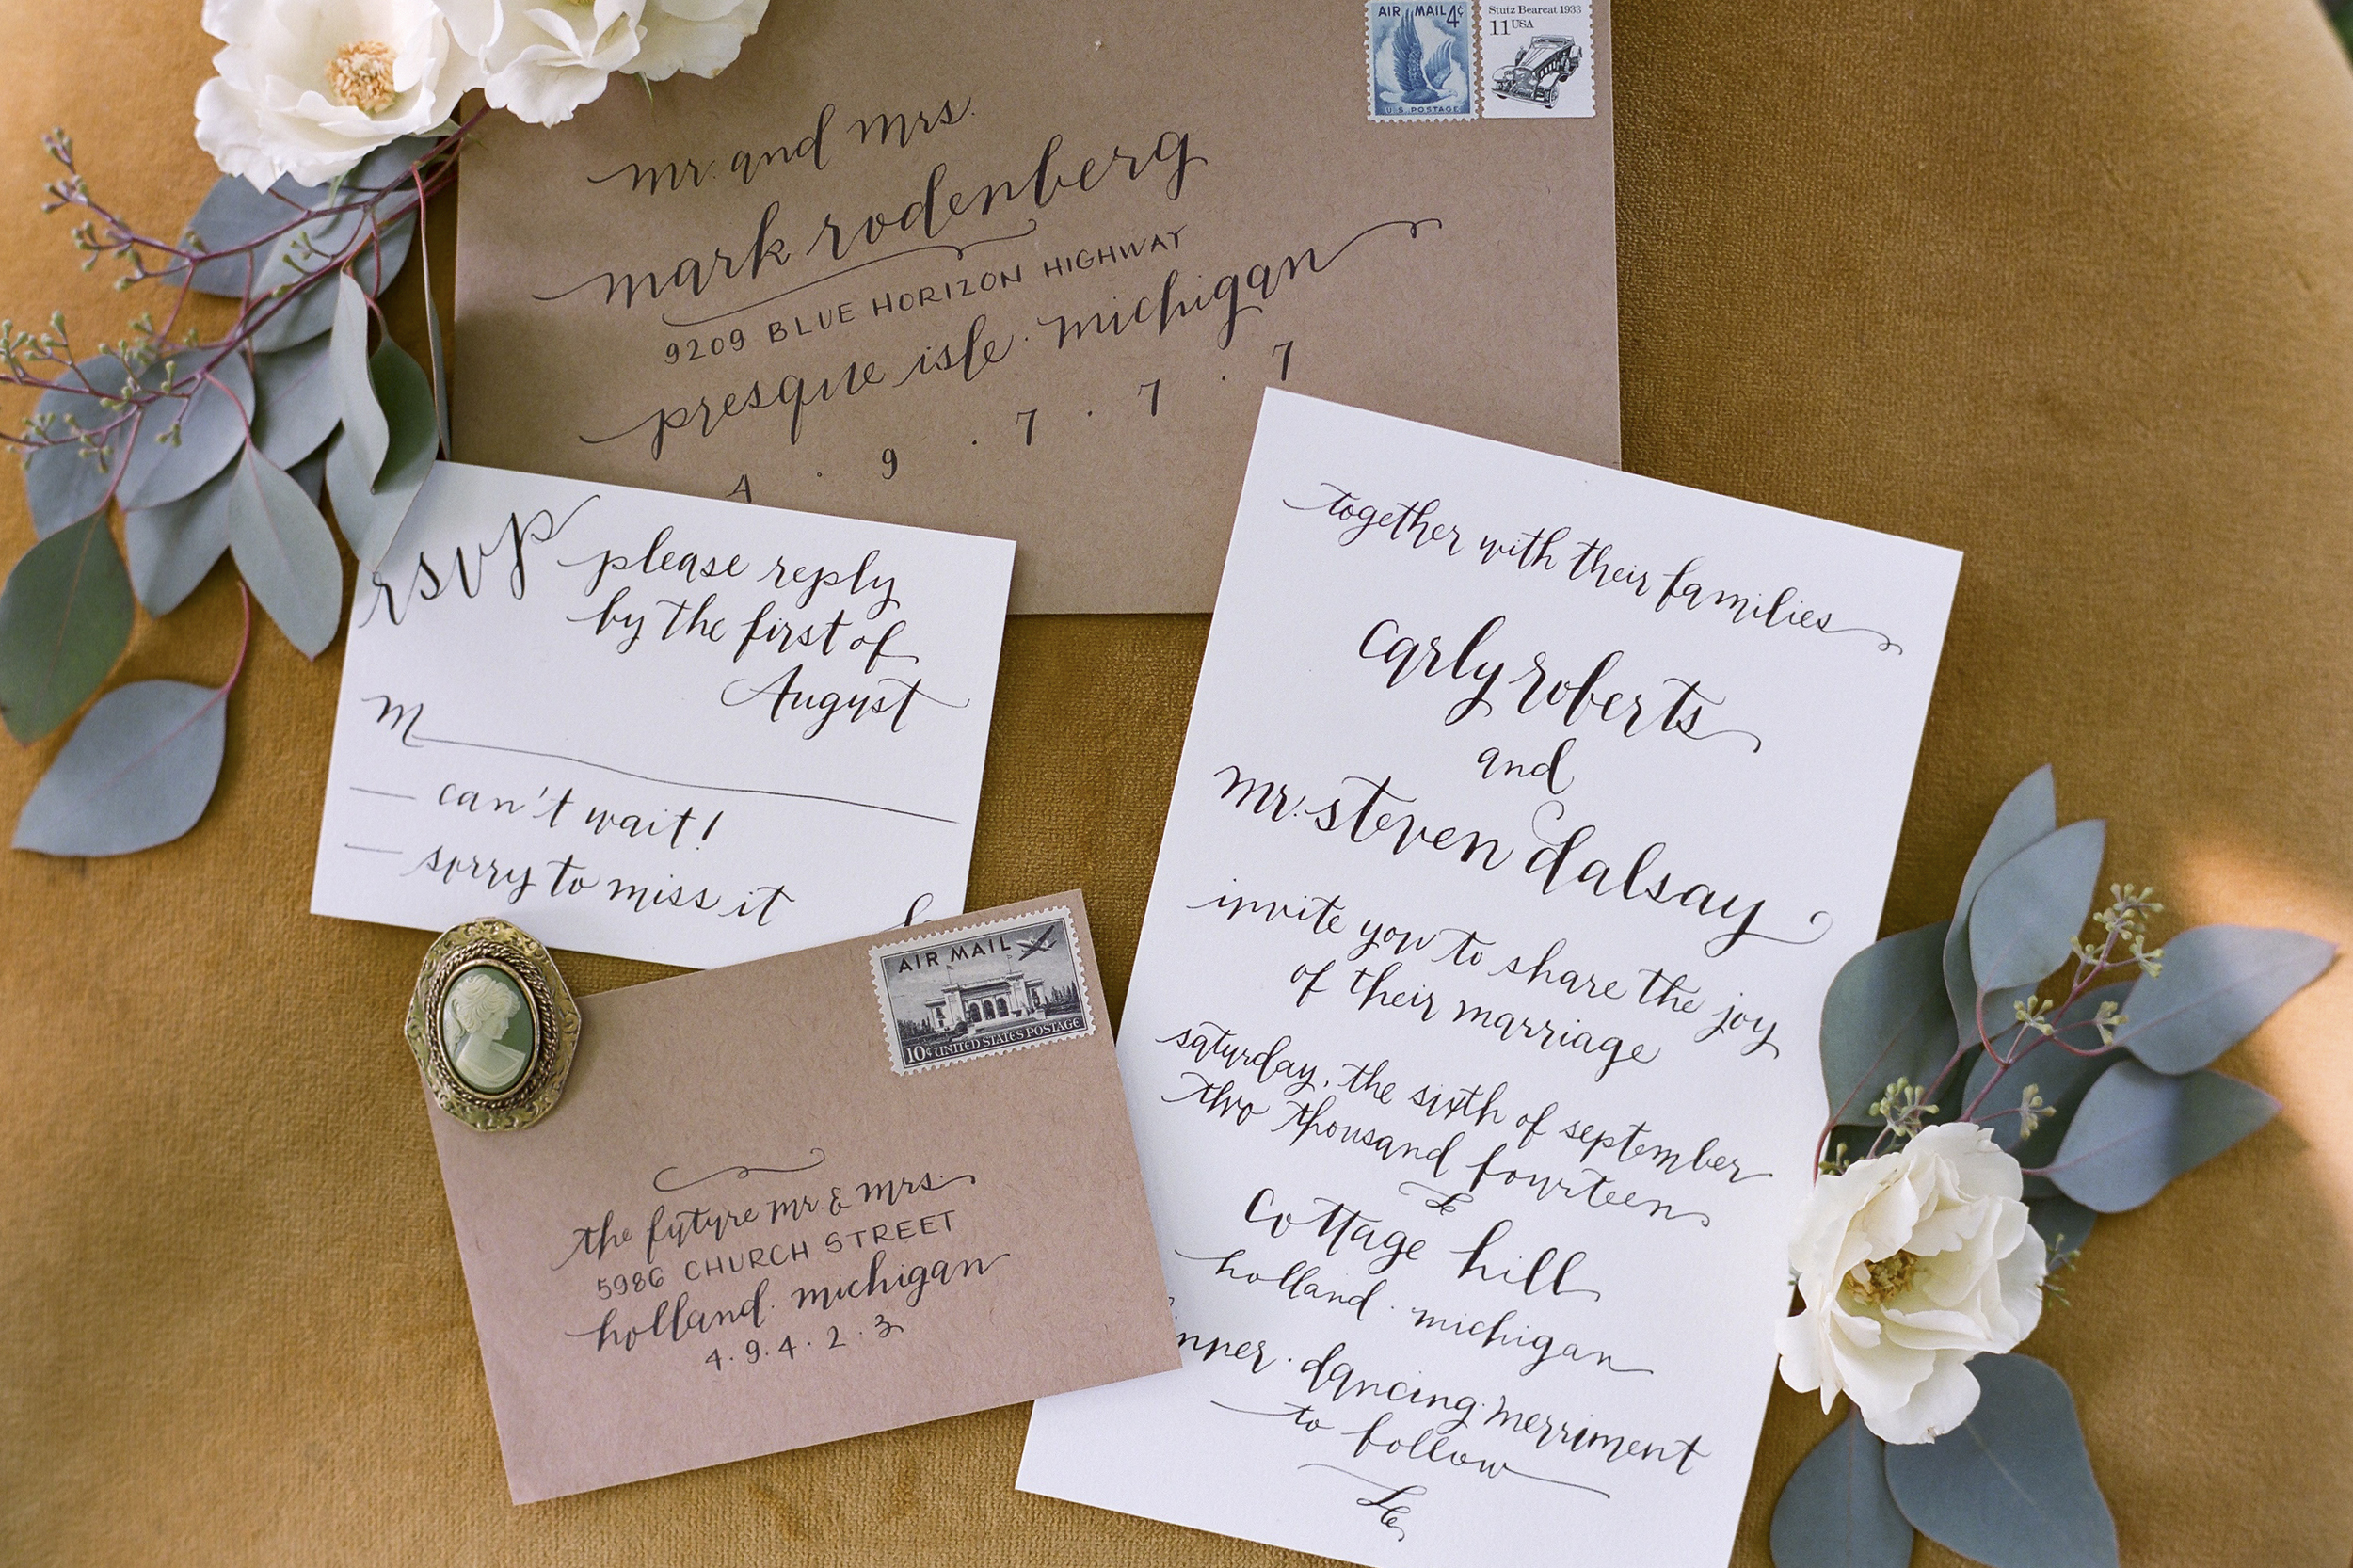 AIR MAIL 4¢
U.S. POSTAGE
Stutz Bearcat 1933
11 USA
mr. and mrs.
mark rodenberg
9209 BLUE HORIZON HIGHWAY
presque isle · michigan
4 · 9 · 7 · 7 · 7
rsvp please reply
by the first of
August
M
can't wait!
sorry to miss it
AIR MAIL
10¢ UNITED STATES POSTAGE
the future mr. & mrs.
5986 CHURCH STREET
holland · michigan
4 · 9 · 4 · 2 · 3
together with their families
carly roberts
and
mr. steven dalsay
invite you to share the joy
of their marriage
saturday, the sixth of september
two thousand fourteen
cottage hill
holland · michigan
nner · dancing · merriment
to follow